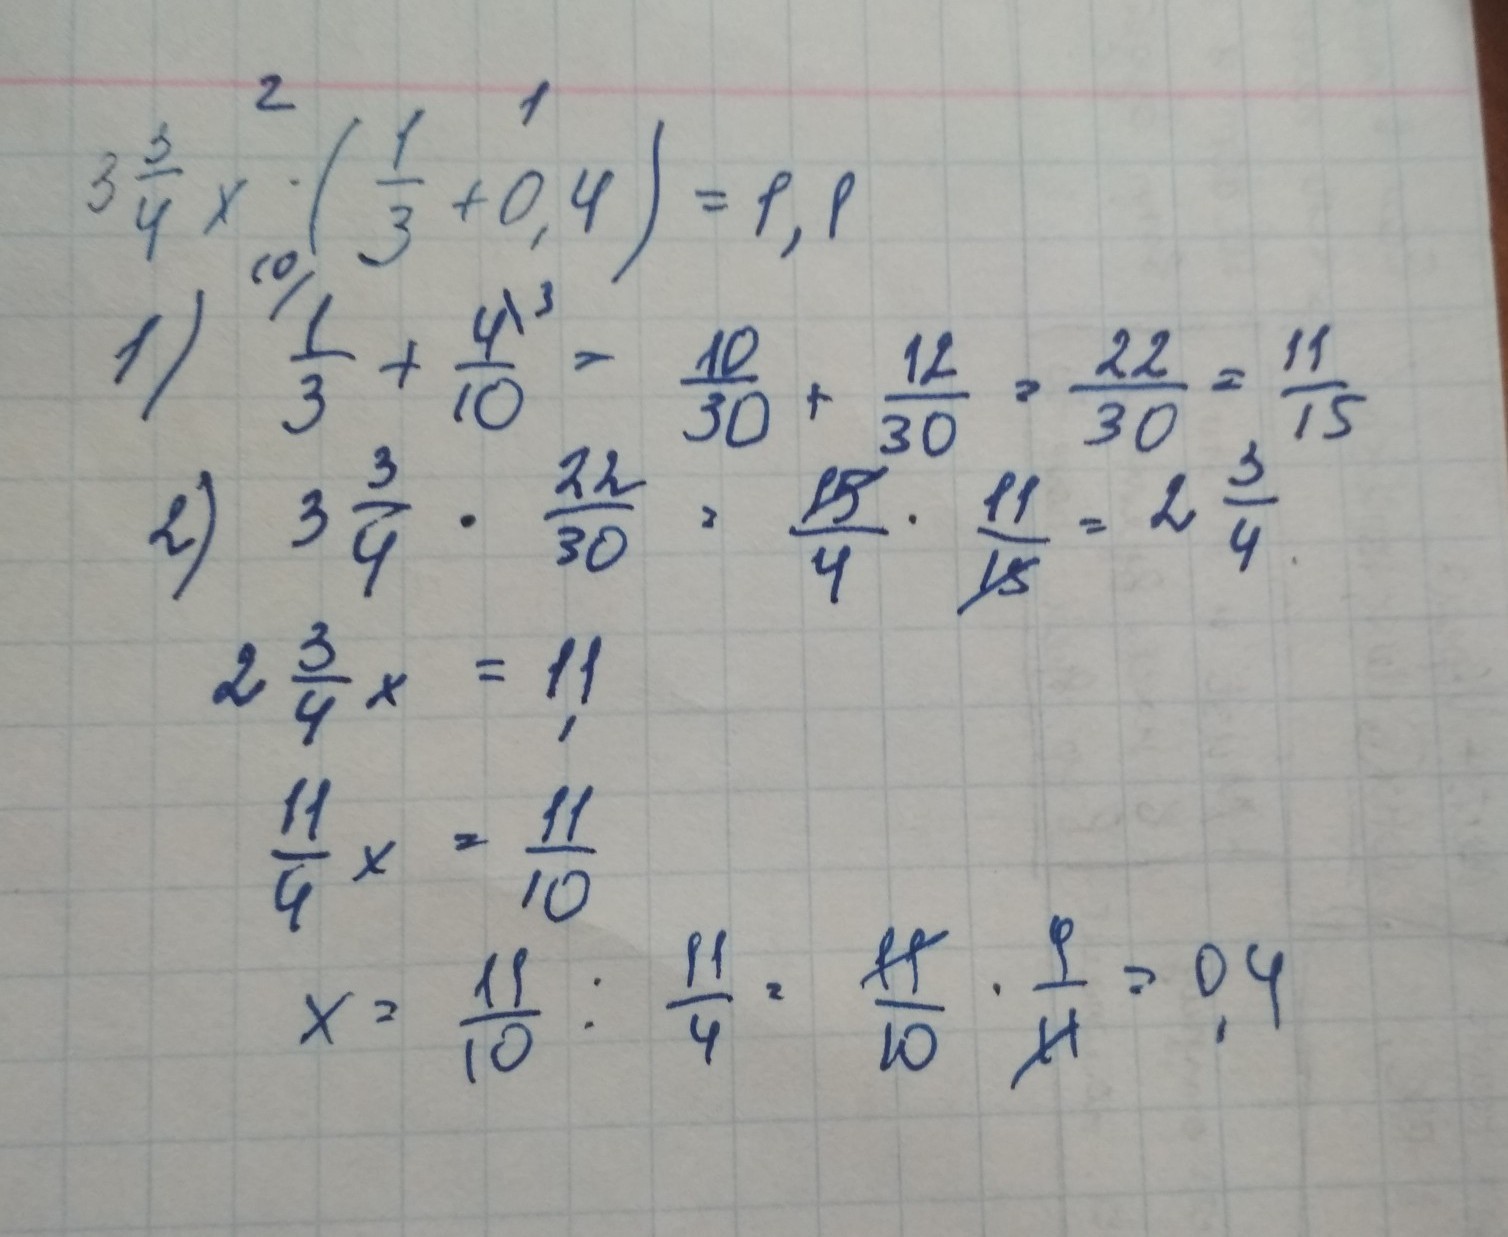 2 1
3 3/4 x · (1/3 + 0,4) = 1,1
1) 10/ 1/3 + 4\3/10 = 10/30 + 12/30 = 22/30 = 11/15
2) 3 3/4 · 22/30 = 15/4 · 11/15 = 2 3/4
2 3/4 x = 1,1
11/4 x = 11/10
x = 11/10 : 11/4 = 11/10 · 4/11 = 0,4